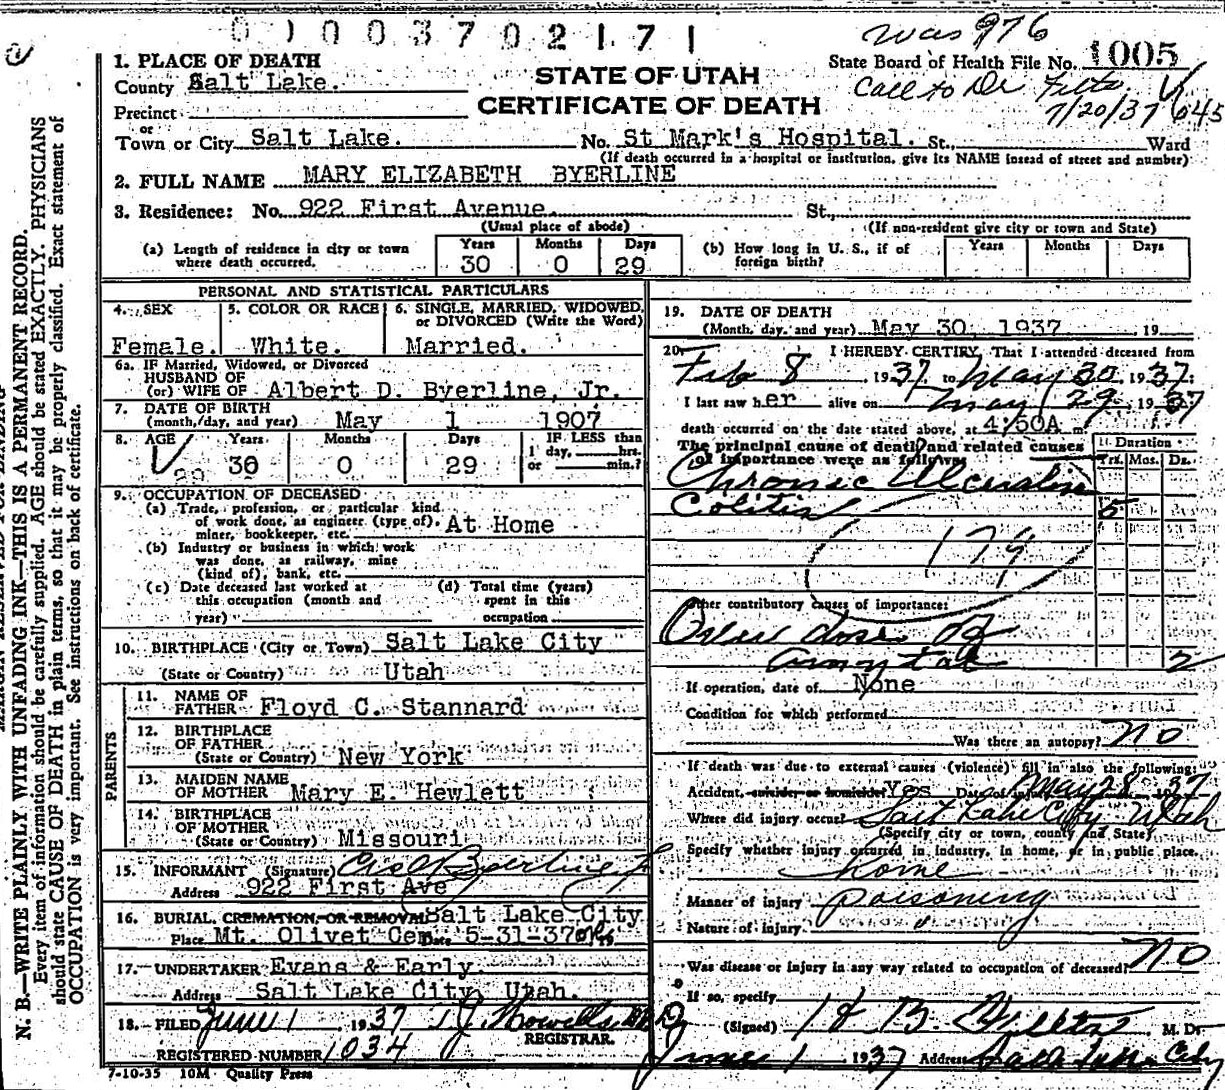 0 1 0 0 3 7 0 2 1 7 1
was 976
1. PLACE OF DEATH
State Board of Health File No. 1005
County Salt Lake.
STATE OF UTAH
Call to Dr
7/20/37 645
Precinct
CERTIFICATE OF DEATH
or
Town or City Salt Lake. No. St Mark's Hospital. St., Ward
(If death occurred in a hospital or institution, give its NAME instead of street and number)
2. FULL NAME MARY ELIZABETH BYERLINE
3. Residence: No. 922 First Avenue. St.,
(Usual place of abode) (If non-resident give city or town and State)
(a) Length of residence in city or town where death occurred. Years 30 Months 0 Days 29
(b) How long in U. S., if of foreign birth? Years Months Days
PERSONAL AND STATISTICAL PARTICULARS
4. SEX Female.
5. COLOR OR RACE White.
6. SINGLE, MARRIED, WIDOWED, or DIVORCED (Write the Word) Married.
6a. IF Married, Widowed, or Divorced
HUSBAND OF
(or) WIFE OF Albert D. Byerline, Jr.
7. DATE OF BIRTH
(month, day, and year) May 1 1907
8. AGE Years 30 Months 0 Days 29 IF LESS than
1 day, hrs.
or min.?
9. OCCUPATION OF DECEASED
(a) Trade, profession, or particular kind
of work done, as engineer (type of), At Home
miner, bookkeeper, etc.
(b) Industry or business in which work
was done, as railway, mine
(kind of), bank, etc.
(c) Date deceased last worked at
this occupation (month and
year)
(d) Total time (years)
spent in this
occupation
10. BIRTHPLACE (City or Town) Salt Lake City
(State or Country) Utah
PARENTS
11. NAME OF
FATHER Floyd C. Stannard
12. BIRTHPLACE
OF FATHER
(State or Country) New York
13. MAIDEN NAME
OF MOTHER Mary E. Hewlett
14. BIRTHPLACE
OF MOTHER
(State or Country) Missouri
15. INFORMANT (Signature) Byerline Jr
Address 922 First Ave
16. BURIAL, CREMATION, OR REMOVAL Salt Lake City
Place Mt. Olivet Cem. Date 5-31-37
17. UNDERTAKER Evans & Early.
Address Salt Lake City, Utah.
18. FILED June 1 1937 T J Howells MD
REGISTRAR.
REGISTERED NUMBER 1034
7-10-35 10M Quality Press
19. DATE OF DEATH
(Month, day, and year) May 30, 1937 , 19
20. I HEREBY CERTIFY, That I attended deceased from
Feb 8 1937 to May 30 1937;
I last saw her alive on May 29 1937
death occurred on the date stated above, at 4:50A m
The principal cause of death and related causes
of importance were as follows: Duration
Yrs. Mos. Ds.
Chronic Ulcerative
Colitis 5
179
Other contributory causes of importance:
Over doses of
amytal 2
If operation, date of None
Condition for which performed
Was there an autopsy? No
If death was due to external causes (violence) fill in also the following:
Accident, suicide or homicide Yes Date of injury May 28 1937
Where did injury occur? Salt Lake City Utah
(Specify city or town, county and State)
Specify whether injury occurred in industry, in home, or in public place.
home
Manner of injury poisoning
Nature of injury "
Was disease or injury in any way related to occupation of deceased? No
If so, specify
(Signed) M. D.
June 1 1937 Address Salt Lake City
N. B.—WRITE PLAINLY WITH UNFADING INK—THIS IS A PERMANENT RECORD.
Every item of information should be carefully supplied. AGE should be stated EXACTLY. PHYSICIANS
should state CAUSE OF DEATH in plain terms, so that it may be properly classified. Exact statement of
OCCUPATION is very important. See instructions on back of certificate.